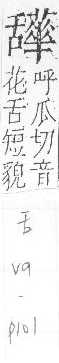 呼瓜切音
花舌短貌
舌
v9
-
p101